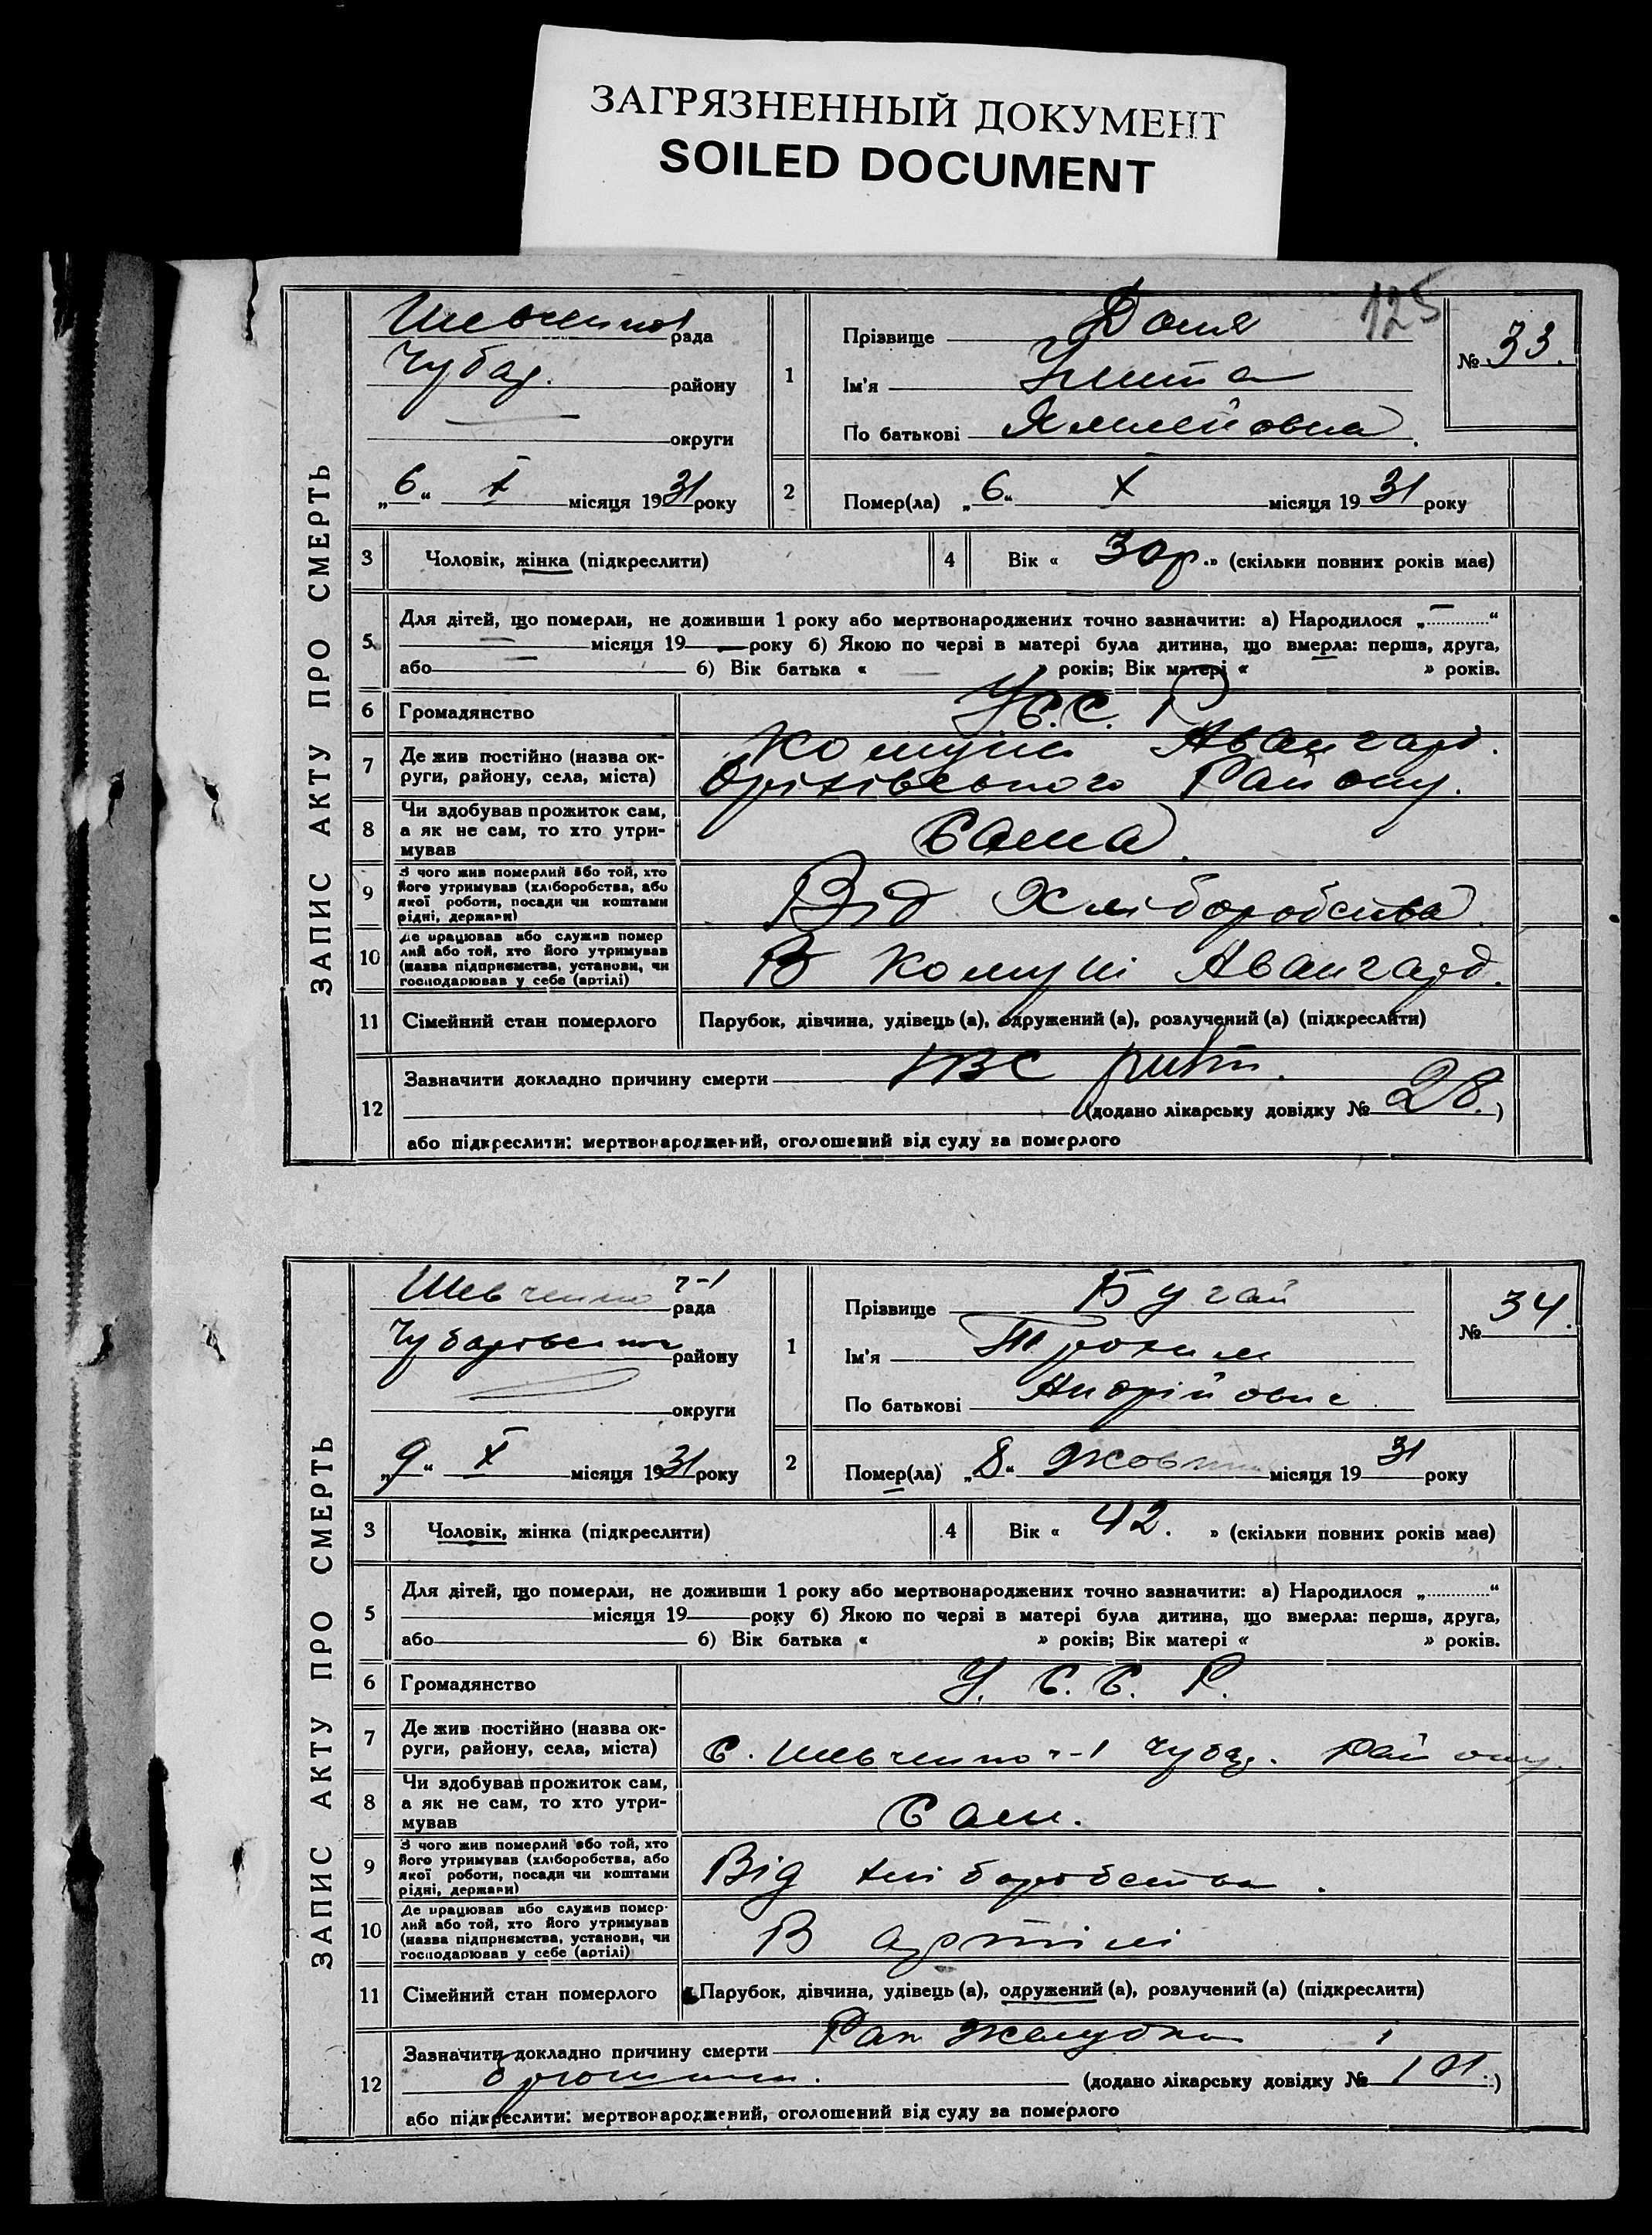 ЗАГРЯЗНЕННЫЙ ДОКУМЕНТ
SOILED DOCUMENT
125
ЗАПИС АКТУ ПРО СМЕРТЬ
рада
Чубар. району
округи
„6“ X місяця 1931 року
1
Прізвище Доля
Ім'я
По батькові
№ 33.
2 Помер(ла) „6“ X місяця 1931 року
3 Чоловік, жінка (підкреслити)
4 Вік « 30 р.» (скільки повних років має)
5 Для дітей, що померли, не доживши 1 року або мертвонароджених точно зазначити: а) Народилося „............“
місяця 19 року б) Якою по черзі в матері була дитина, що вмерла: перша, друга,
або б) Вік батька « » років; Вік матері « » років.
6 Громадянство У.С.С.Р
7 Де жив постійно (назва ок-
руги, району, села, міста)
Комуна Авангард.
Оріхівського Району.
8 Чи здобував прожиток сам,
а як не сам, то хто утри-
мував
Сама.
9 З чого жив померлий або той, хто
його утримував (хліборобства, або
якої роботи, посади чи коштами
рідні, держави)
Від Хліборобства.
10 Де працював або служив помер
лий або той, хто його утримував
(назва підприємства, установи, чи
господарював у себе (артілі)
В комуні Авангард.
11 Сімейний стан померлого Парубок, дівчина, удівець (а), одружений (а), розлучений (а) (підкреслити)
12 Зазначити докладно причину смерти
(додано лікарську довідку № 28.)
або підкреслити: мертвонароджений, оголошений від суду за померлого
ЗАПИС АКТУ ПРО СМЕРТЬ
Шевченко ч-1 рада
Чубарівського району
округи
„9“ X місяця 1931 року
1
Прізвище Бугай
Ім'я Трохим
По батькові Андрійович
№ 34.
2 Помер(ла) „8“ Жовтня місяця 1931 року
3 Чоловік, жінка (підкреслити)
4 Вік « 42. » (скільки повних років має)
5 Для дітей, що померли, не доживши 1 року або мертвонароджених точно зазначити: а) Народилося „............“
місяця 19 року б) Якою по черзі в матері була дитина, що вмерла: перша, друга,
або б) Вік батька « » років; Вік матері « » років.
6 Громадянство У. С. С. Р.
7 Де жив постійно (назва ок-
руги, району, села, міста)
С. Шевченко ч-1 Чубар. Району
8 Чи здобував прожиток сам,
а як не сам, то хто утри-
мував
Сам.
9 З чого жив померлий або той, хто
його утримував (хліборобства, або
якої роботи, посади чи коштами
рідні, держави)
Від хліборобства.
10 Де працював або служив помер-
лий або той, хто його утримував
(назва підприємства, установи, чи
господарював у себе (артілі)
В артілі
11 Сімейний стан померлого Парубок, дівчина, удівець (а), одружений (а), розлучений (а) (підкреслити)
12 Зазначити докладно причину смерти Рак Желудка і
(додано лікарську довідку № 101.)
або підкреслити: мертвонароджений, оголошений від суду за померлого